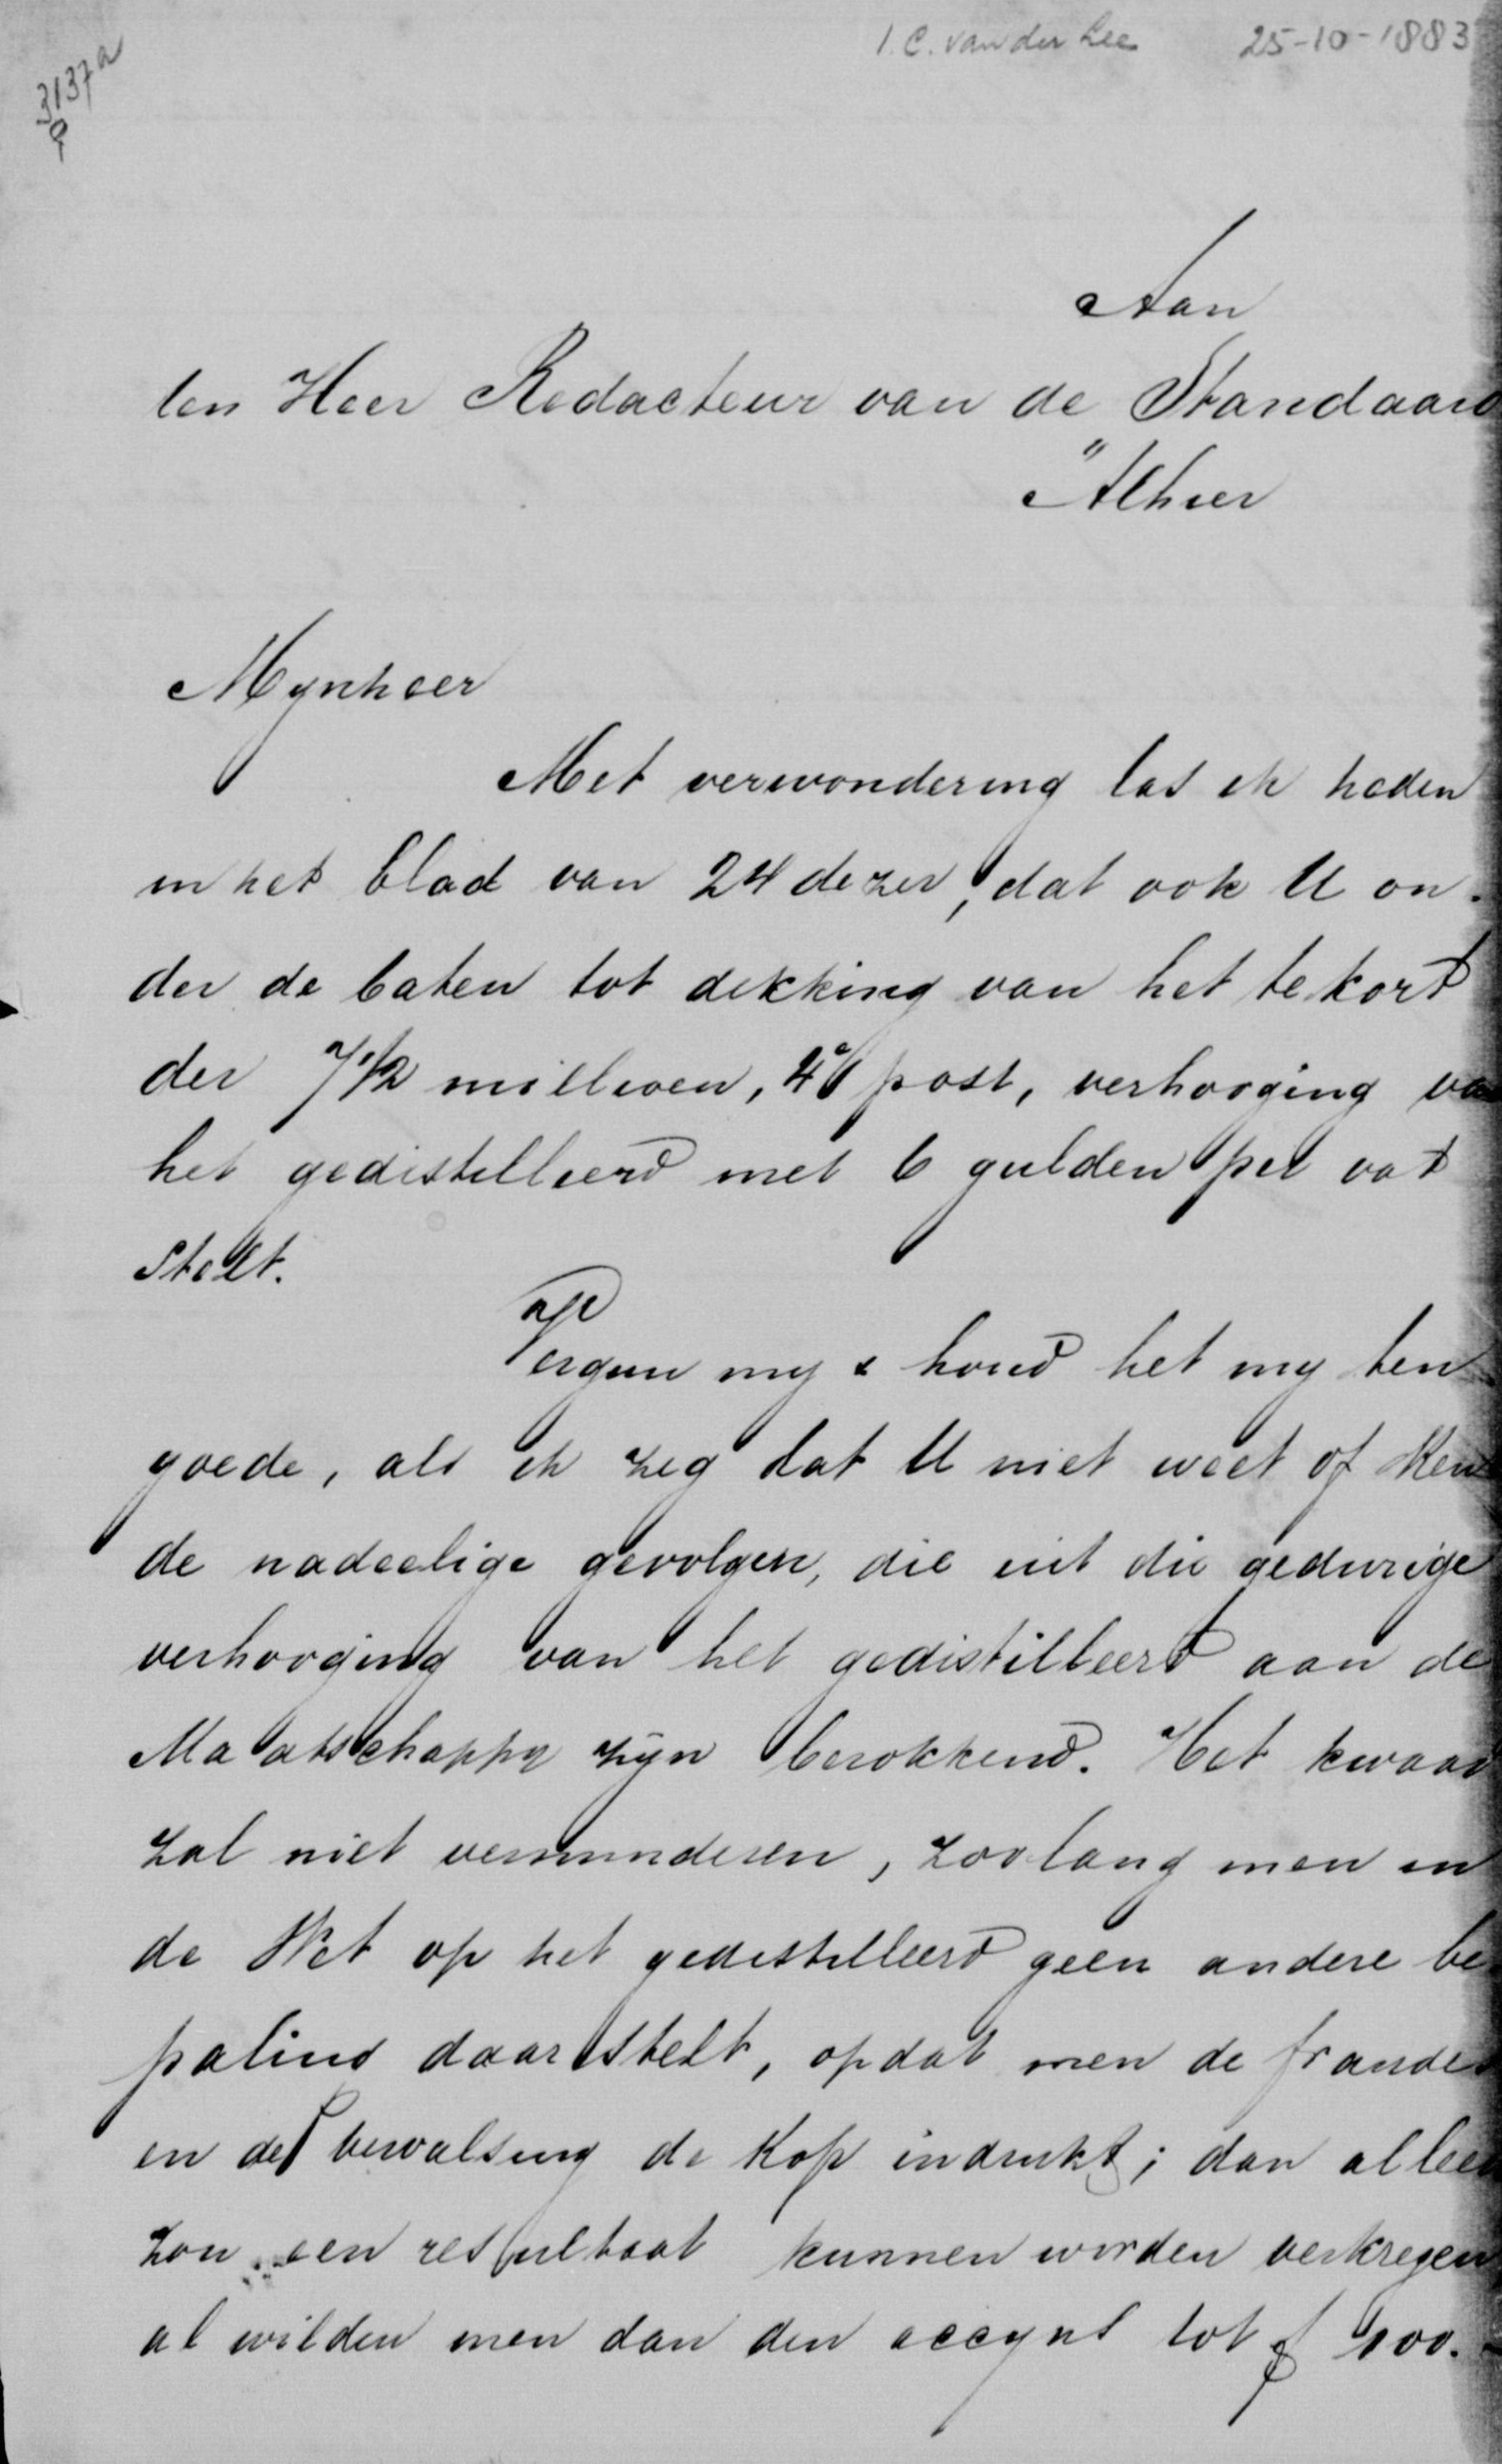 I.C. van der Lee 25-10-1883
3137a
Aan
den Heer Redacteur van de Standaard
Alhier
Mynheer
Met verwondering las ik heden
in het blad van 24 dezer, dat ook U on-
der de baten tot dekking van het tekort
der 7 1/2 millioen, 4e post, verhooging va
het gedistelleerd met 6 gulden per vat
Stelt.
Vergun my & houd het my ten
goede, als ik zeg dat U niet weet of Ken
de nadeelige gevolgen, die uit die gedurige
verhooging van het gedistilleerd aan de
Maatschappy zyn berokkend. Het kwaad
zal niet verminderen, zoolang men in
de Wet op het gedestilleerd geen andere be
paling daarstelt, opdat men de fraudes
en de vervalsing de Kop indrukt; dan alleen
zou een resultaat kunnen worden verkregen
al wilden men dan den accyns tot f 100.-